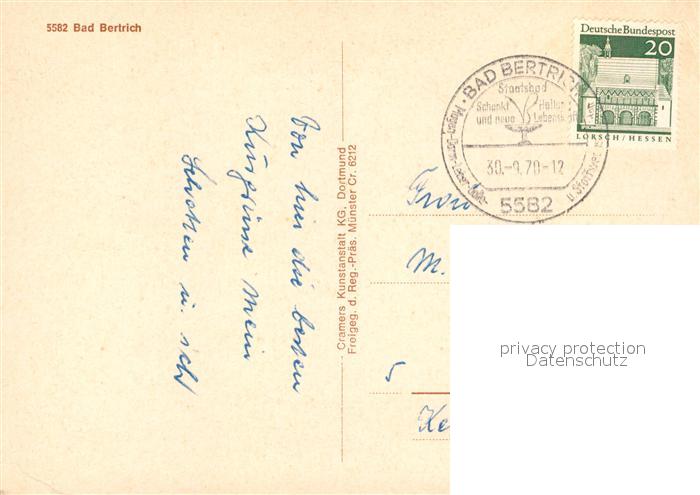 5582 Bad Bertrich
Von hier die besten
Kurgrüsse Mein
Schatten u. ich
Cramers Kunstanstalt KG. Dortmund
Freigeg. d. Reg.-Präs. Münster Cr. 6212
Deutsche Bundespost
20
LORSCH/HESSEN
BAD BERTRICH
Staatsbad
Schenkt Heilung
und neue Lebenskraft
Magen-Darm-Leber-Galle-
u. Stoffwe
30.-9.70-12
5582
Frau
M.
5
Ke
privacy protection
Datenschutz